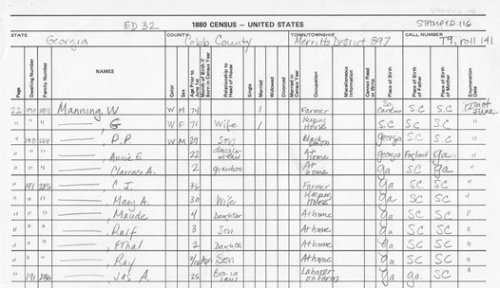 ED 32 1880 CENSUS – UNITED STATES STAMPED 116
STATE COUNTY TOWN/TOWNSHIP CALL NUMBER
Georgia Cobb County Merritts District 897 T9, roll 141
Page Dwelling Number Family Number NAMES Color Sex Age Prior to Relationship to Head of House Single Married Widowed Divorced Married in Census Year Occupation Miscellaneous Information Cannot Read or Write Place of Birth Place of Birth of Father Place of Birth of Mother Enumeration Date
22 Manning W W M 74 1 Farmer So. Carolina S.C S.C 12th of June
" " " ——, G W F 71 Wife 1 Keeping House S.C S.C S.C "
" ——, P.P. W M 29 Son Black Smith Georgia S.C S.C "
" " " ——, Annie E. 22 daughter in law At home Georgia England ga "
" " " ——, Clarence A. 2 grandson At home ga ga ga "
" 191 285 ——, C J. 36 Farmer ga S.C S.C "
" " " ——, Mary A. 30 Wife Keeping House ga S.C S.C "
" " " ——, Maude 4 Daughter At home ga S.C S.C "
" " " ——, Ralf 3 Son At home ga S.C S.C "
" " " ——, Ethal 2 Daughter At home ga S.C S.C "
" " " ——, Ray Son At home ga S.C S.C "
" 191 286 ——, Jas A. 25 Laborer on farm ga ga S.C "